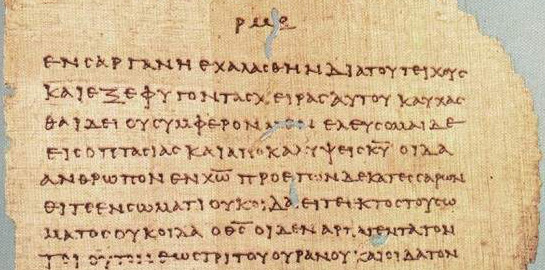 ΕΝϹΑΡΓΑΝΗΕΧΑΛΑϹΘΗΝΔΙΑΤΟΥΤΕΙΧΟΥϹ
ΚΑΙΕΞΕΦΥΓΟΝΤΑϹΧΕΙΡΑϹΑΥΤΟΥΚΑΥΧΑϹ
ΘΑΙΔΕΙΟΥϹΥΜΦΕΡΟΝ ΕΛΕΥϹΟΜΑΙΔΕ
ΕΙϹΟΠΤΑϹΙΑϹΚΑΙΑΠΟΚΑΛΥΨΕΙϹΚ̅Υ̅ΟΙΔΑ
ΑΝΘΡΩΠΟΝΕΝΧ̅Ω̅ΠΡΟΕΤΩΝΔΕΚΑΤΕϹϹΑΡΩΝ
ΕΙΤΕΕΝϹΩΜΑΤΙΟΥΚΟΙΔΑΕΙΤΕΕΚΤΟϹΤΟΥϹΩ
ΜΑΤΟϹΟΥΚΟΙΔΑΟΘ̅Ϲ̅ΟΙΔΕΝΑΡΠΑΓΕΝΤΑΤΟΝ
ΤΟΙΟΥΤΟΝΕΩϹΤΡΙΤΟΥΟΥΡΑΝΟΥΚΑΙΟΙΔΑΤΟΝ